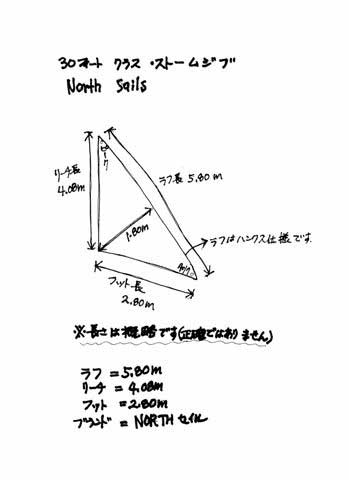 30フィート クラス・ストームジブ
North Sails
ピーク
リーチ長
4.08m
ラフ長 5.80m
1.80m
ラフはハンクス仕様です
タック
フット長
2.80m
※長さは概略です(正確ではありません)
ラフ = 5.80m
リーチ = 4.08m
フット = 2.80m
ブランド = NORTH セイル